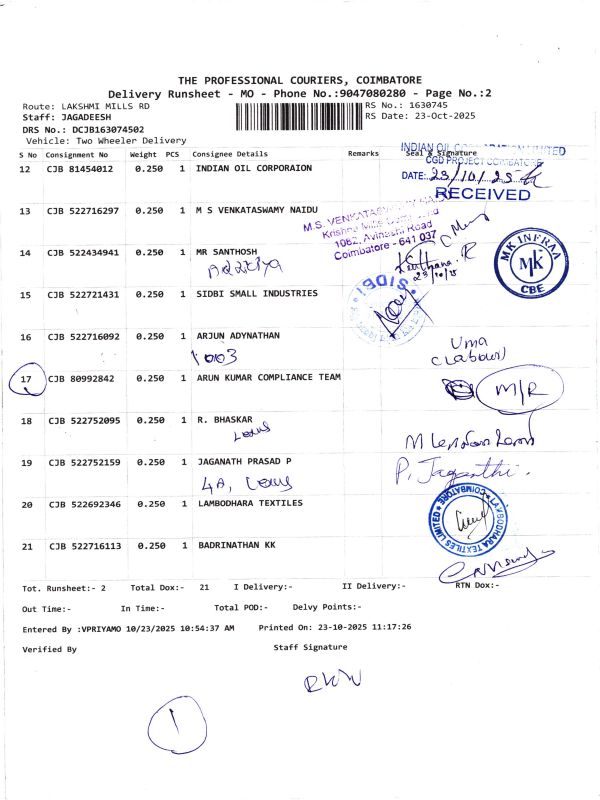 THE PROFESSIONAL COURIERS, COIMBATORE
Delivery Runsheet - MO - Phone No.:9047080280 - Page No.:2
Route: LAKSHMI MILLS RD RS No.: 1630745
Staff: JAGADEESH RS Date: 23-Oct-2025
DRS No.: DCJB163074502
Vehicle: Two Wheeler Delivery
S No Consignment No Weight PCS Consignee Details Remarks Seal & Signature
INDIAN OIL CORPORATION LIMITED
CGD PROJECT COIMBATORE
12 CJB 81454012 0.250 1 INDIAN OIL CORPORAION
DATE: 23/10/25
RECEIVED
13 CJB 522716297 0.250 1 M S VENKATASWAMY NAIDU
M.S. VENKATASWAMY
Krishna Mills
1062, Avinashi Road
Coimbatore - 641 037
14 CJB 522434941 0.250 1 MR SANTHOSH
Adzitiya
23/10/25
MK INFRAA
MK
CBE
15 CJB 522721431 0.250 1 SIDBI SMALL INDUSTRIES
SIDBI
16 CJB 522716092 0.250 1 ARJUN ADYNATHAN
1003
Uma
(Labour)
17 CJB 80992842 0.250 1 ARUN KUMAR COMPLIANCE TEAM
M/R
18 CJB 522752095 0.250 1 R. BHASKAR
19 CJB 522752159 0.250 1 JAGANATH PRASAD P
4A,
P. Jaganthi.
20 CJB 522692346 0.250 1 LAMBODHARA TEXTILES
LAMBODHARA TEXTILES LIMITED COIMBATORE
21 CJB 522716113 0.250 1 BADRINATHAN KK
Tot. Runsheet:- 2 Total Dox:- 21 I Delivery:- II Delivery:- RTN Dox:-
Out Time:- In Time:- Total POD:- Delvy Points:-
Entered By :VPRIYAMO 10/23/2025 10:54:37 AM Printed On: 23-10-2025 11:17:26
Verified By Staff Signature
1